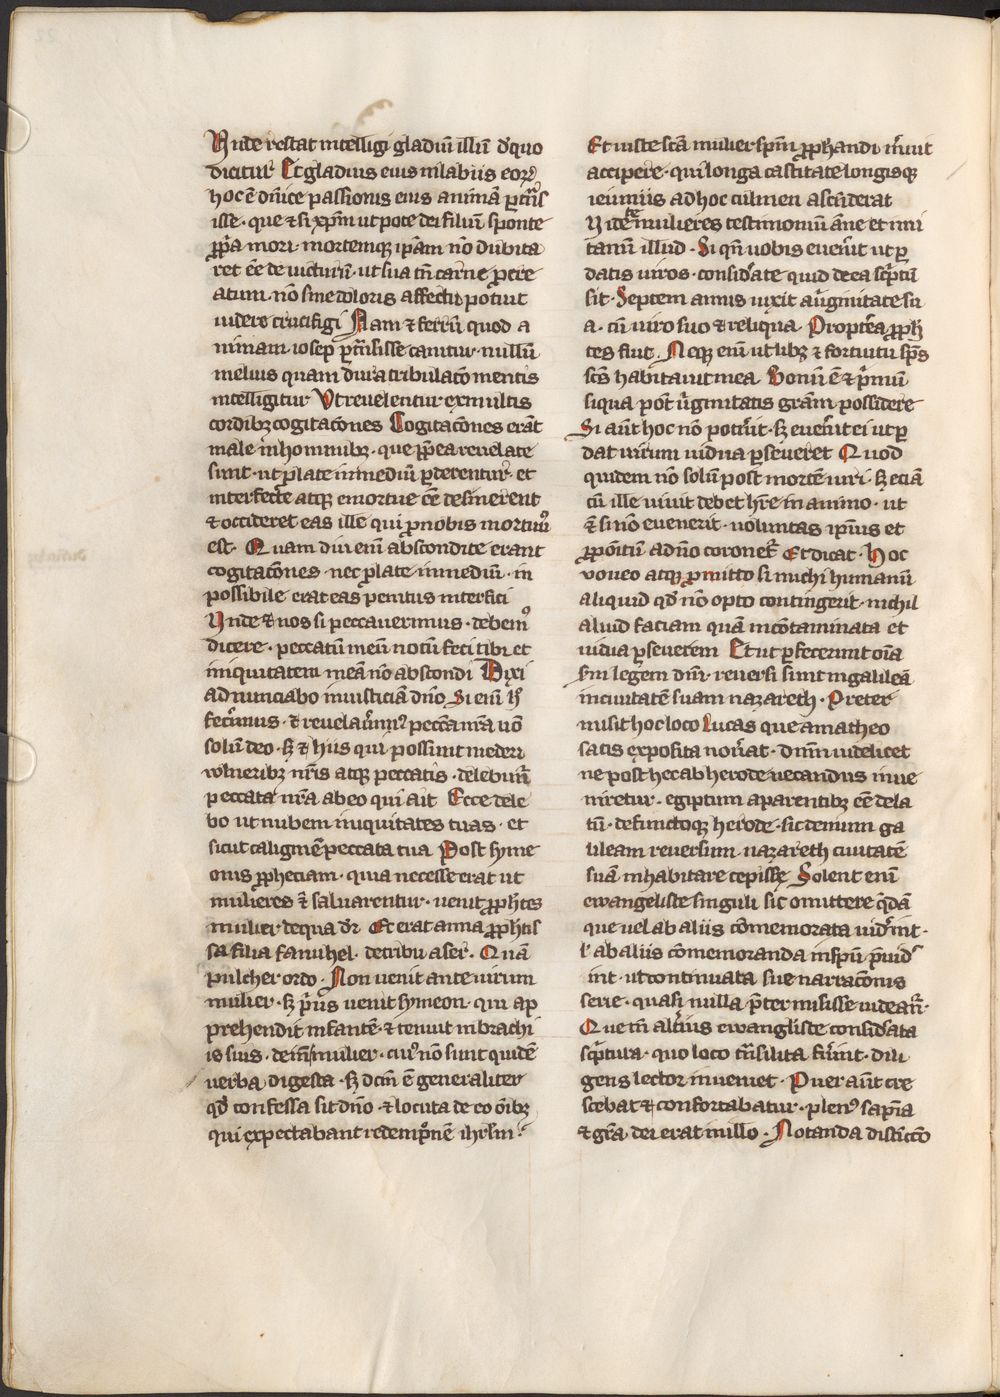 Unde restat intelligi gladiū illū d̓ quo
dicitur Et gladius eius in labiis eoꝝ
hoc ē dn̄ice passionis eius animā ꝑtrāſ
isse · que ⁊ si xp̄m ut pote dei filiū sponte
ꝓp̄a mori · mortemqꝫ ip̄am nō dubita
ret ēē deuicturū · ut sua tn̄ carne ꝓcre
atum · nō sine doloris affectu potuit
uidere crucifigi Nam ⁊ ferrū quod a
nimam iosep ꝑtrāsisse canitur · nullū
melius quam dura tribulatōe mentis
intelligitur Ut reuelentur ex multis
cordibꝫ cogitacōnes Cogitacōnes erāt
male in hominibꝫ · que pꝰea reuelate
sunt · ut ꝓlate in mediū ꝑderentur · et
interfecte atqꝫ emortue ēē desinerent
⁊ occideret eas ille qui ꝓ nobis mortuꝰ
est · Quam diu enī abscondite erant
cogitacōnes · nec ꝓlate in mediū · in
possibile erat eas penitus interfici
Unde ⁊ nos si peccauerimus · debemꝰ
dicere · peccatū meū notū feci tibi et
iniquitatem meā nō abscondi Dixi
adnunciabo iniusticiā dn̄o Si enī h̓
fecʳimus · ⁊ reuelauʳimꝰ peccā mr̄a nō
solū deo · sꝫ ⁊ hiis qui possunt mederi
vulneribꝫ nr̄is atqꝫ peccatis · delebunt̄
peccata nr̄a ab eo qui ait Ecce dele
bo ut nubem iniquitates tuas · et
sicut caliginē peccata tua Post syme
onis ꝓpheciam · quia necesse erat ut
mulieres ⁊̄ saluarentur · uenit ꝓphtēs
mulier · de qua dr̄ Et erat anna ꝓphtīs
sa filia fanuhel · de tribu aser · Quā
pulcher ordo · Non uenit ante uirum
mulier · sꝫ p̄us uenit symeon · qui ap
prehendit infantē · ⁊ tenuit in brachi
is suis · dein̄ mulier · cuiꝰ nō sunt quidē
uerba digesta · sꝫ dcm̄ ē generaliter
qd̓ confessa sit dn̄o · ⁊ locuta de eo oībꝫ
qui expectabant redempcōnē ihrlm̄ ·
Et iuste scā mulier spm̄ ꝓphandi mʳuit
accipere · qui longa castitate longisqꝫ
ieiuniis ad hoc culmen ascenderat
Uidete mulieres testimoniū anne et imi
tamī illud · Si qn̄ uobis euenʳit ut ꝑ
datis uiros · considʳate quid de ea scʳptū
sit · Septem annis uixit a uʳginitate su
a · cū uiro suo ⁊ reliqua Proptʳea ꝓph
tes fiut · Neqꝫ enī ut libꝫ ⁊ fortuitu spūs
scūs habitauit in ea Bonū ē ⁊ pʳmū
si qua pōt uʳginitatis grām possidere
Si aūt hoc nō potʳit · sꝫ euenʳit ei ut ꝑ
dat uirum uidua ꝑseueret Quod
quidem nō solū post mortē uiri · sꝫ eciā
cū ille uiuit debet hr̄e in animo · ut
⁊̄ si nō euenerit · uoluntas ipīus et
ꝓpositū a dn̄o coronet̄ Et dicat · Hoc
voueo atqꝫ ꝓmitto si michi humanū
aliquid qd̓ nō opto contingerit · nichil
aliud faciam quā incontaminata et
uidua ꝑseuerem Et ut ꝑfecerunt oīa
sm̄ legem dn̄i · reuersi sunt in galileā
in ciuitatē suam nazareth · Preter
misit hoc loco Lucas que a matheo
satis exposita nouʳat · dn̄m uidelicet
ne post hec ab herode necandus inue
niretur · egiptum a parentibꝫ ēē dela
tū · defunctoqꝫ herode · sic demum ga
lileam reuersum nazareth ciuitatē
suā inhabitare cepisse Solent enī
ewangeliste singuli sic omittere qʳdā
que uel ab aliis cōmemorata uidʳint ·
l̓ ab aliis cōmemoranda in spū p̄uidʳ
int · ut continuata sue narracōnis
serie · quasi nulla p̄termisisse uideant̄ ·
Que tn̄ altʳius ewangliste considʳata
scʳptura · quo loco trāsilita fuʳint · dili
gens lector inueniet · Puer aūt cre
scebat ⁊ confortabatur · plenꝰ sapīa
⁊ grā dei erat in illo · Notanda distīcco